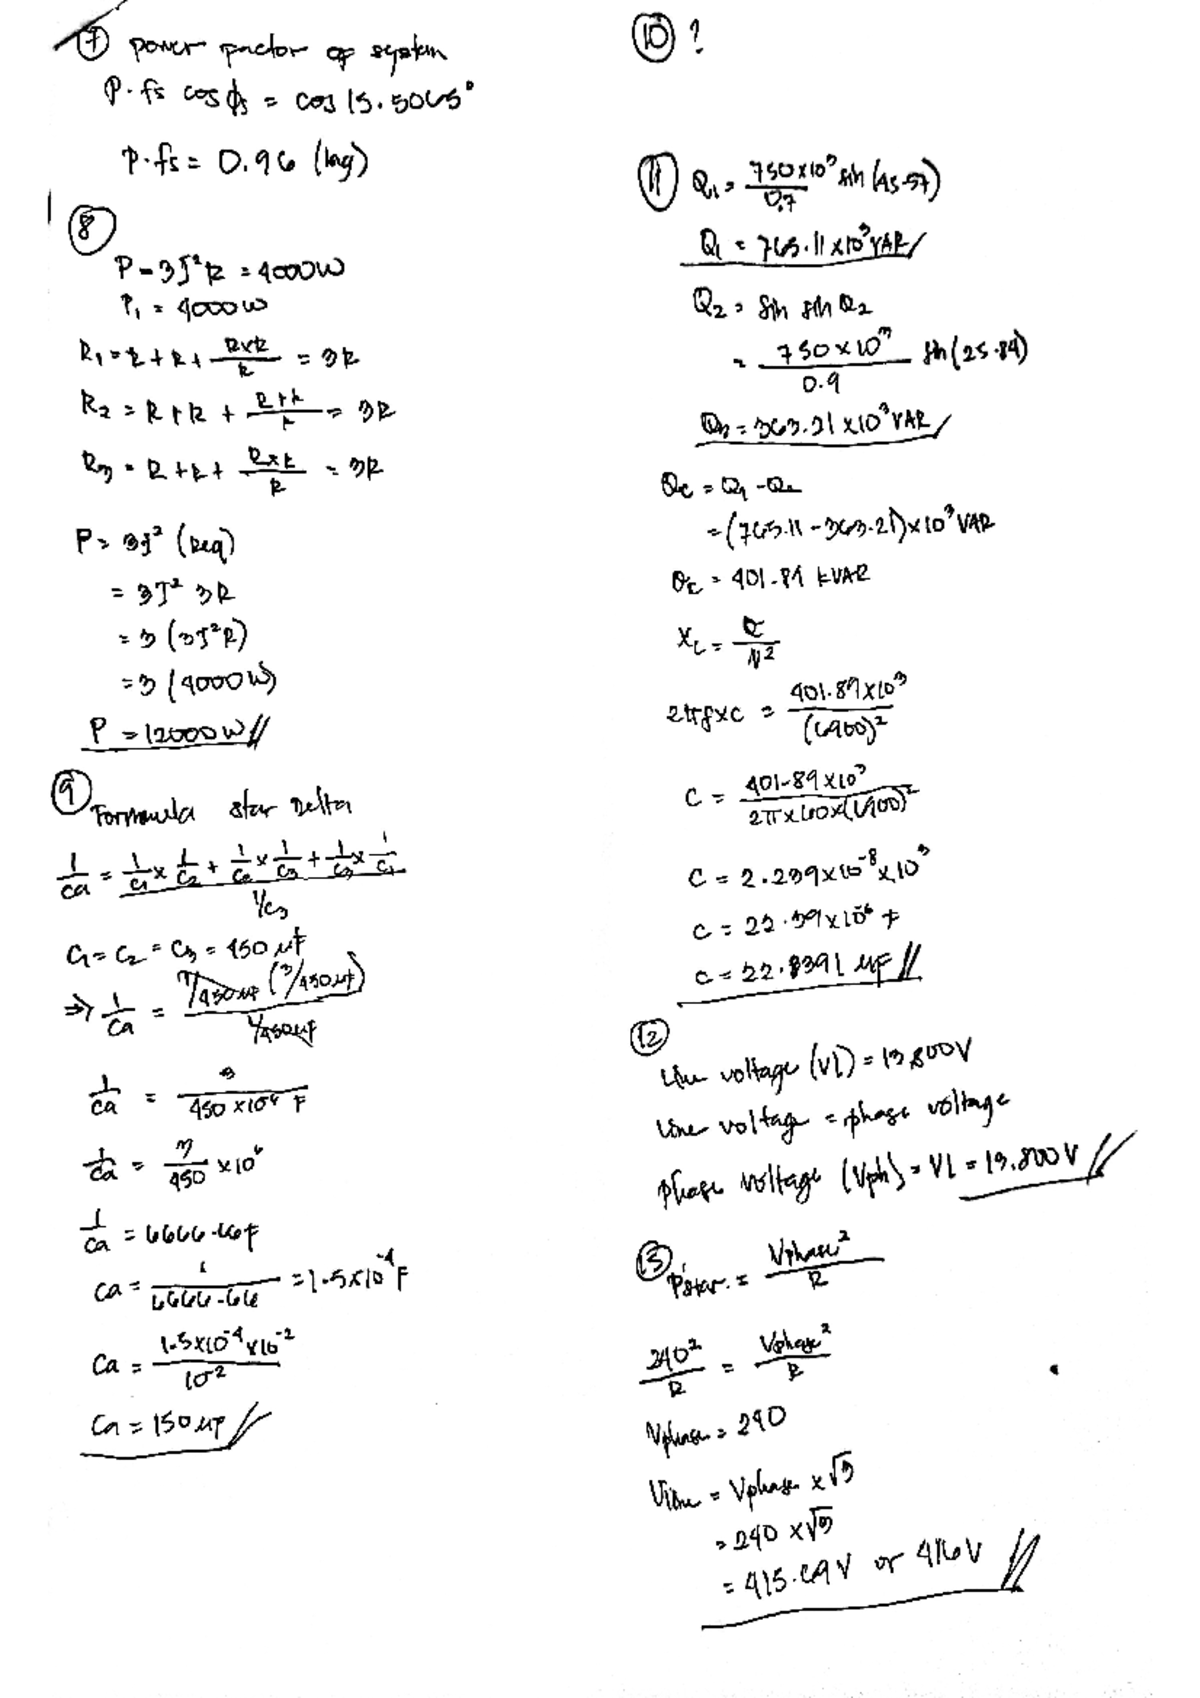 7 power factor of system
P.fs cos φs = cos 15.5065°
P.fs = 0.96 (lag)
8
P = 3I²R = 4000W
P₁ = 4000W
R₁ = R + R + RxR/R = 3R
R₂ = R + R + R+R/R = 3R
R₃ = R + R + RxR/R = 3R
P = 3I² (Req)
= 3I² 3R
= 3 (3I²R)
= 3 (4000W)
P = 12000W //
9 Formula star Delta
1/Ca = 1/C₁ x 1/C₂ + 1/C₂ x 1/C₃ + 1/C₃ x 1/C₁
1/C₃
C₁ = C₂ = C₃ = 450 μF
⇒ 1/Ca = 1/450μF (3/450μF)
1/450μF
1/Ca = 3 / 450 x10⁻⁶ F
1/Ca = 3/450 x 10⁶
1/Ca = 6666.66F
Ca = 1/6666.66 = 1.5x10⁻⁴ F
Ca = 1.5x10⁻⁴ x10⁻² / 10⁻²
Ca = 150 μF //
10 ?
11 Q₁ = 750x10³/0.7 sin (45.57)
Q₁ = 765.11 x10³ VAR //
Q₂ = Sin sin Q₂
= 750x10³/0.9 sin (25.84)
Q₂ = 363.21 x10³ VAR //
Qc = Q₁ - Q₂
= (765.11 - 363.21) x10³ VAR
Qc = 401.89 kVAR
XL = Q/V²
2πfxC = 401.89x10³/(6900)²
C = 401.89x10³/2πx60x(6900)²
C = 2.239x10⁻⁸ x 10³
C = 22.39x10⁻⁶ F
C = 22.8391 μF //
12
Line voltage (VL) = 13,800V
Line voltage = phase voltage
Phase voltage (Vph) = VL = 13,800V //
13 Pstar. = Vphase²/R
240²/R = Vphase²/R
Vphase = 240
Vline = Vphase x √3
= 240 x √3
= 415.69V or 416V //